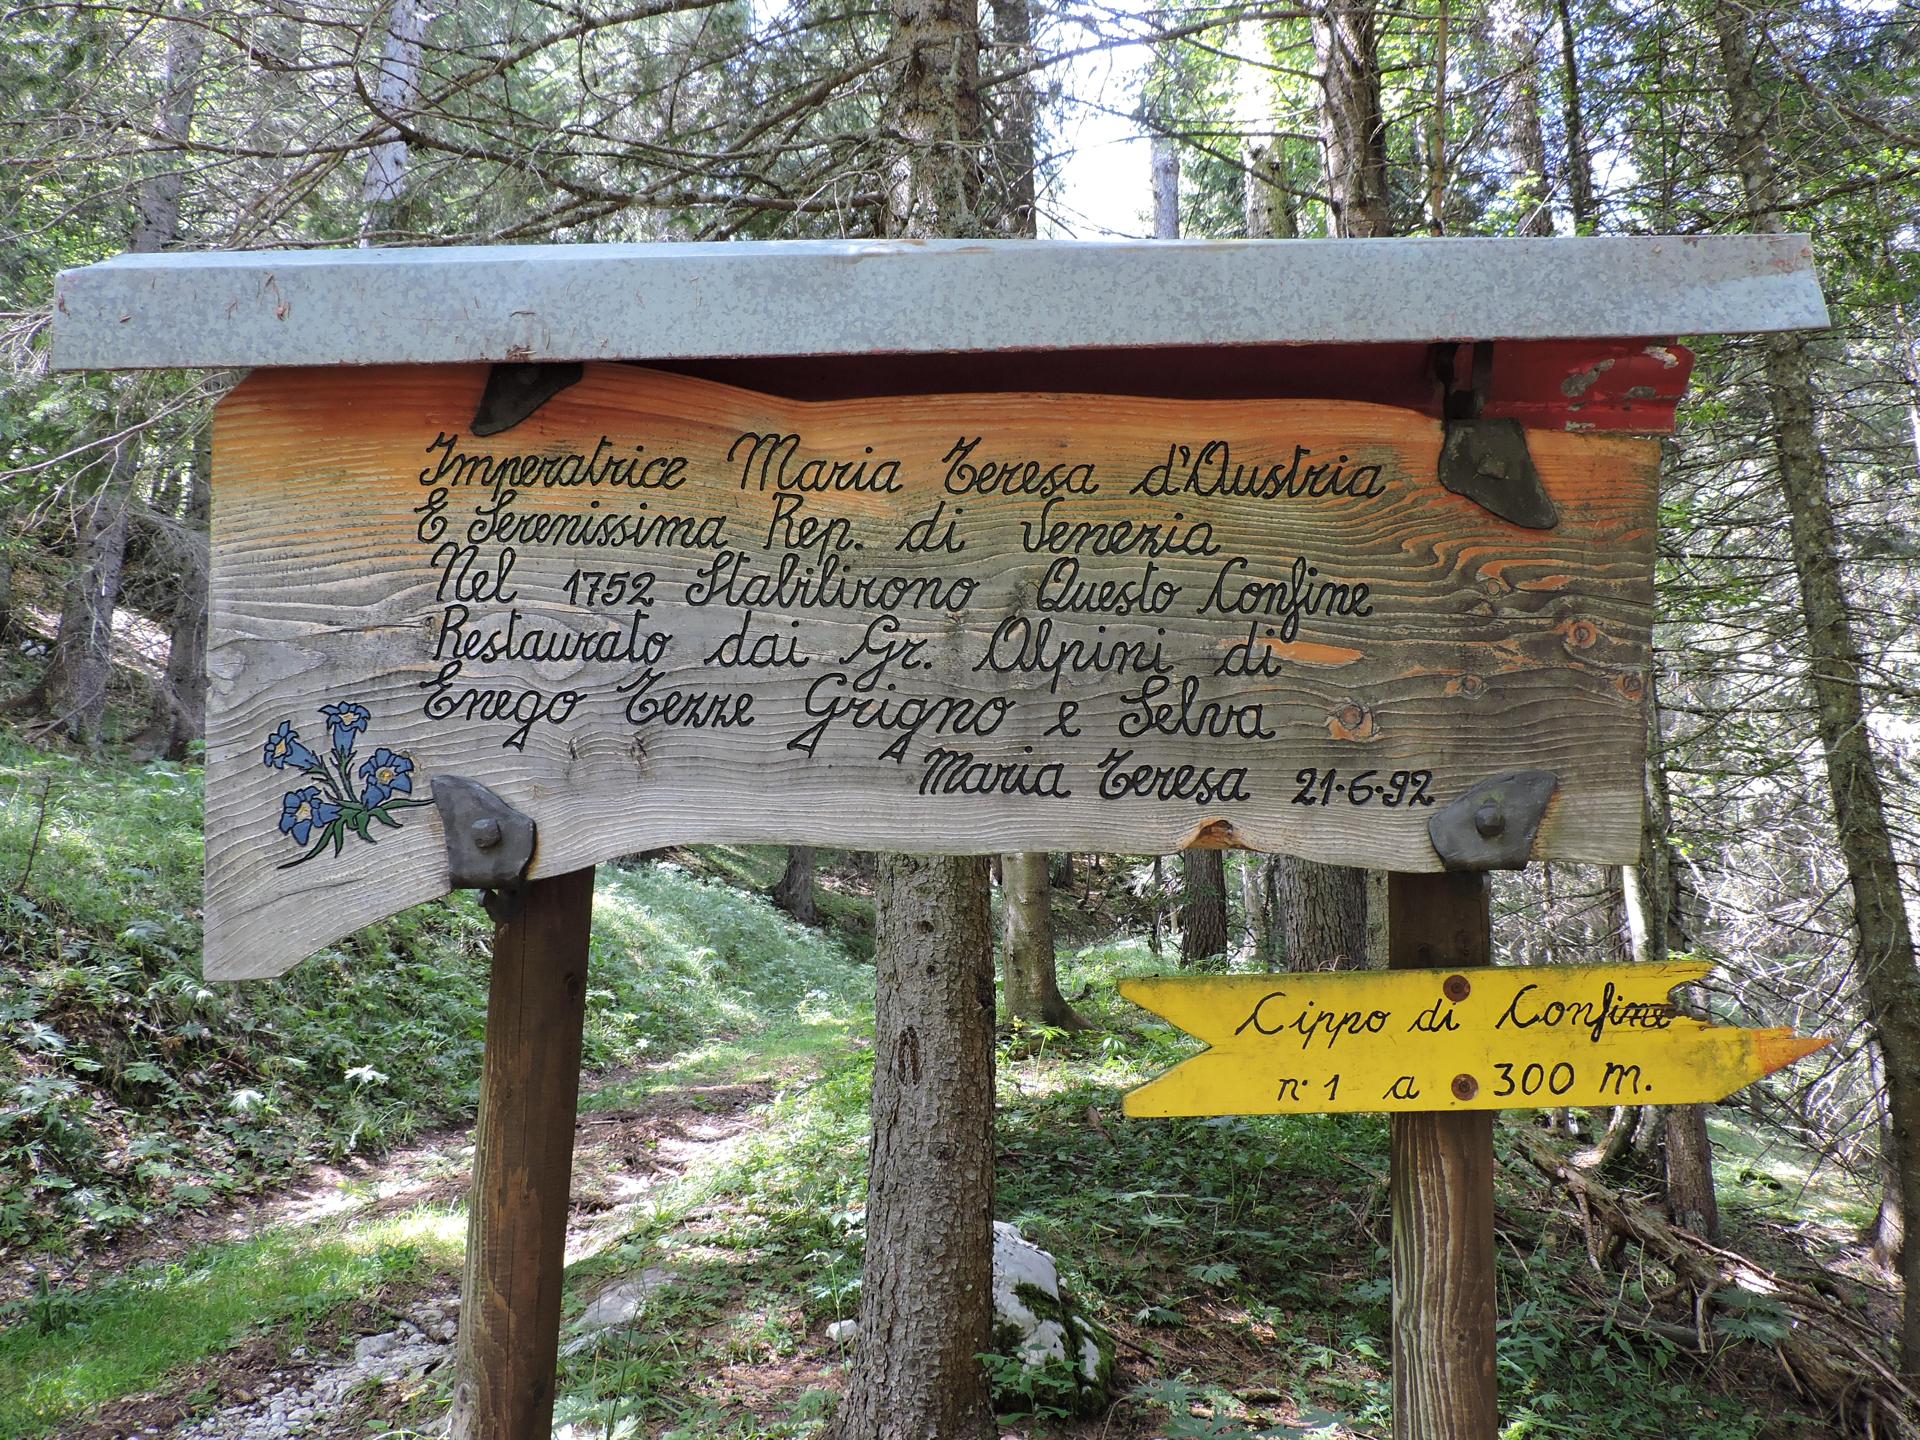 Imperatrice Maria Teresa d'Austria
E Serenissima Rep. di Venezia
Nel 1752 Stabilirono Questo Confine
Restaurato dai Gr. Alpini di
Enego Tezze Grigno e Selva
Maria Teresa 21·6·92
Cippo di Confine
n° 1 a 300 m.